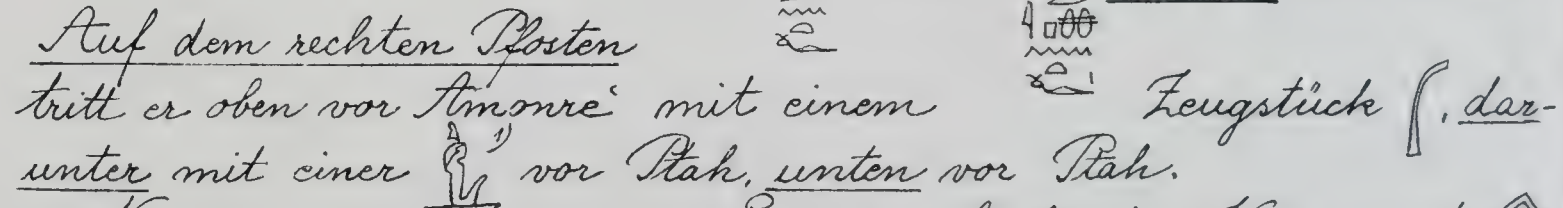 Auf dem rechten Pfosten
tritt er oben vor Amonre' mit einem Zeugstück , dar-
unter mit einer 1) vor Ptah, unten vor Ptah.